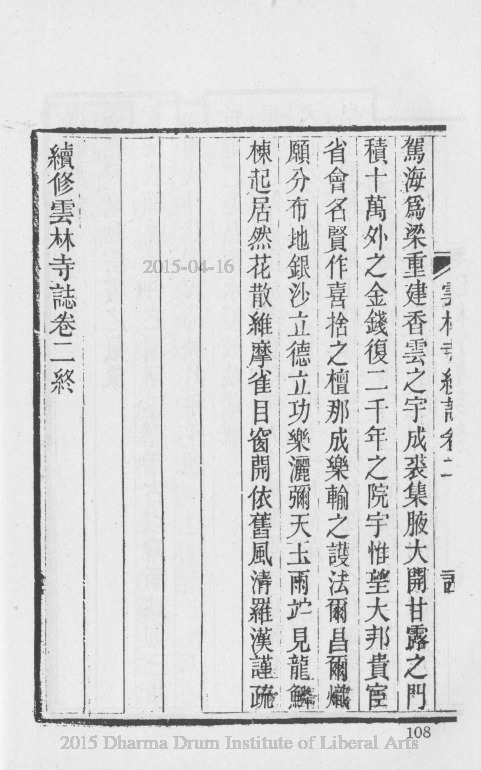 雲林寺續誌卷二
駕海爲梁重建香雲之宇成裘集腋大開甘露之門
積十萬外之金錢復二千年之院宇惟望大邦貴宦
省會名賢作喜捨之檀那成樂輸之護法爾昌爾熾
願分布地銀沙立德立功樂灑彌天玉雨竚見龍鱗
棟起居然花散維摩雀目窗開依舊風清羅漢謹疏
續修雲林寺誌卷二終
2015-04-16
108
2015 Dharma Drum Institute of Liberal Arts